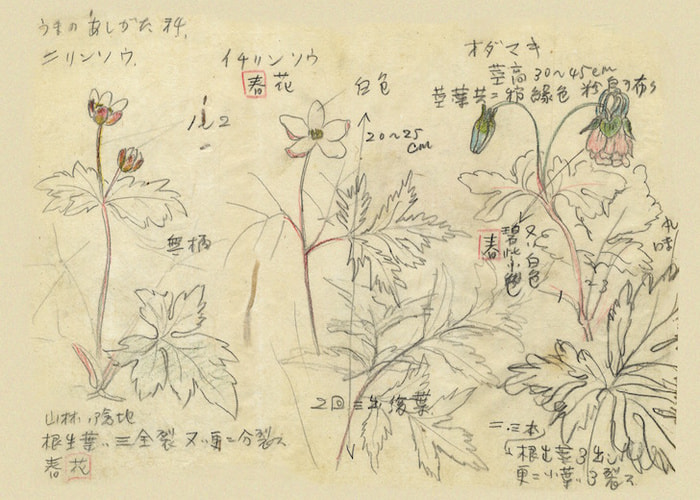 うまのあしがた科.
ニリンソウ.
無柄
山林ノ陰地
根生葉ハ三全裂 又ハ更ニ分裂ス
春花
イチリンソウ
春花
白色
20~25
cm
2回三出複葉
オダマキ.
茎高30~45cm
茎葉共ニ粉緑色
春
又ハ白色
1
2-3
ニ.三本
根出葉3出シ
更ニ小葉ハ3裂ス